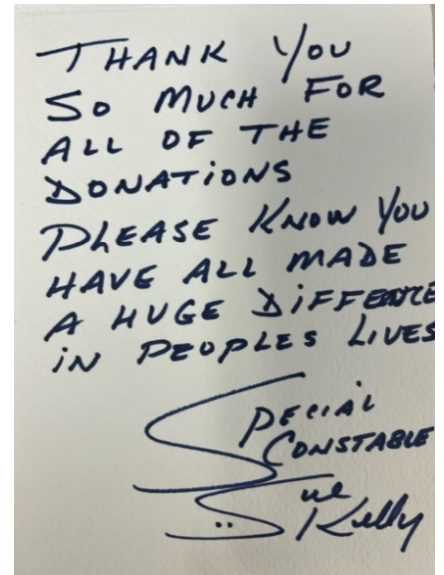 THANK YOU
SO MUCH FOR
ALL OF THE
DONATIONS
PLEASE KNOW YOU
HAVE ALL MADE
A HUGE DIFFENCE
IN PEOPLES LIVES
SPECIAL
CONSTABLE
Sue
Kelly